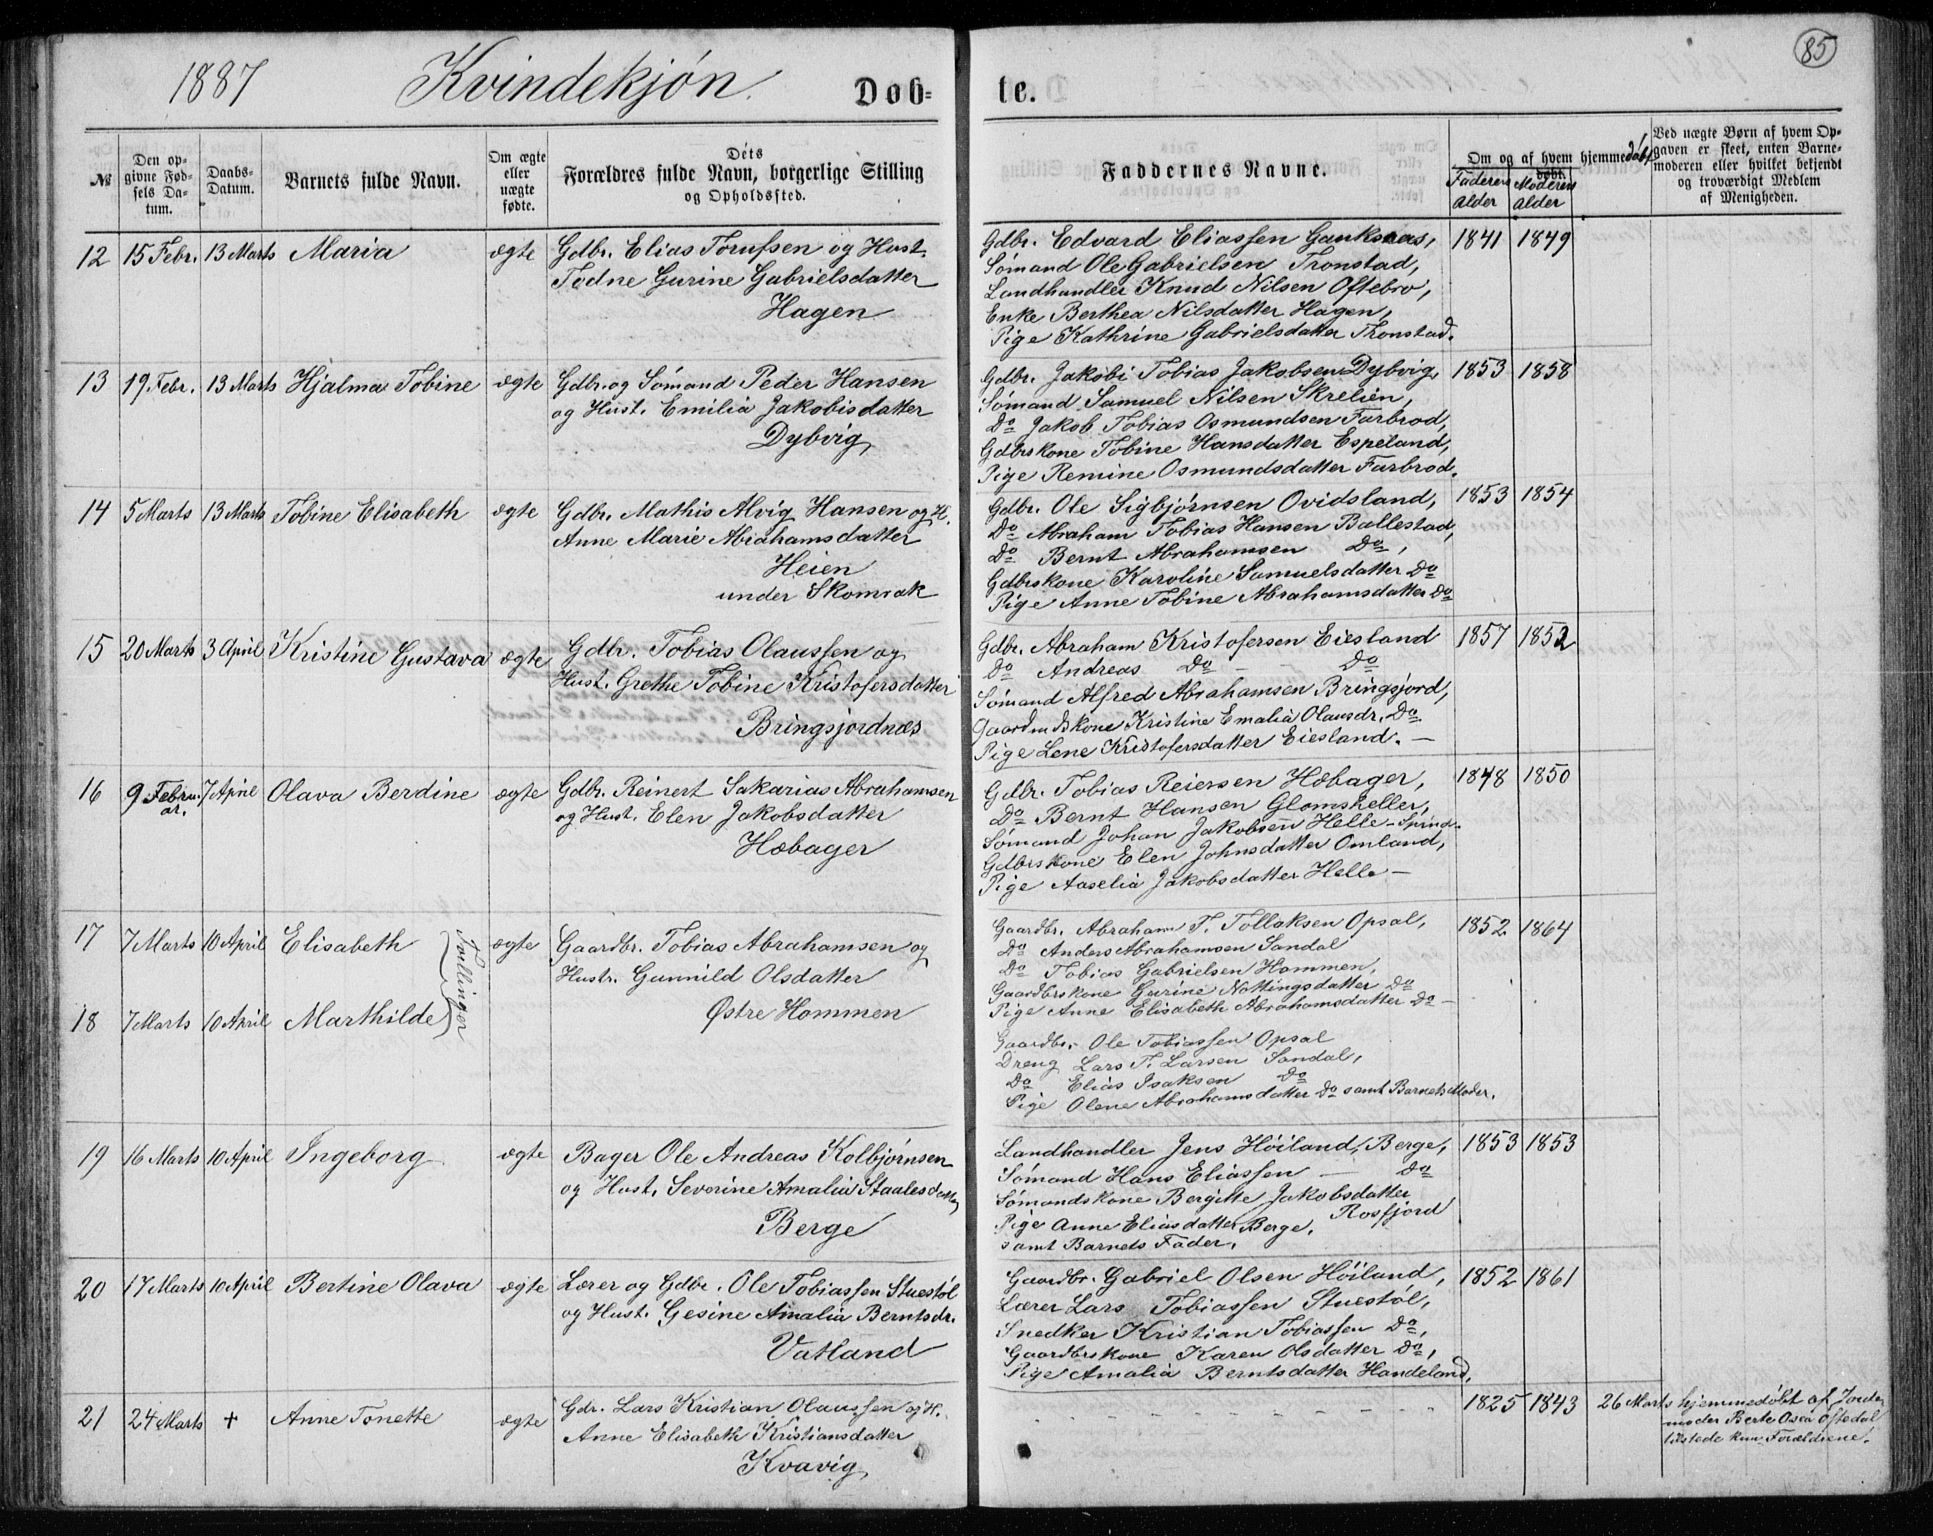 85
1887 Kvindekjøn. Døb= te.
№
Den op-
givne Fød-
sels Da-
tum.
Daabs-
Datum.
Barnets fulde Navn.
Om ægte
eller
uægte
fødte.
Déts
Forældres fulde Navn, borgerlige Stilling
og Opholdssted.
Faddernes Navne.
Om og af hvem hjemmedøbt
døbt.
Faderens
Alder
Moderens
Alder
Ved uægte Børn af hvem Op-
gaven er skeet, enten Barne-
moderen eller hvilket bekjendt
og troværdigt Medlem
af Menigheden.
12 15 Febr. 13 Marts Maria ægte
Gdbr. Elias Torufsen og Hust.
Todne Gurine Gabrielsdatter
Hagen
Gdbr. Edvard Eliassen Gauksaas,
Sømand Ole Gabrielsen Tronstad,
Landhandler Knud Nilsen Oftebro,
Enke Berthea Nilsdatter Hagen,
Pige Kathrine Gabrielsdatter Tronstad.
1841 1849
13 19. Febr. 13 Marts Hjalma Tobine ægte
Gdbr. og Sømand Peder Hansen
og Hust. Emilia Jakobisdatter
Dybvig
Gdbr. Jakobi Tobias Jakobsen Dybvig,
Sømand Samuel Nilsen Skrelien,
Do Jakob Tobias Osmundsen Farbrod,
Gdbrskone Tobine Hansdatter Espeland,
Pige Remine Osmundsdatter Farbrod.
1853 1858
14 5 Marts 13 Marts Tobine Elisabeth ægte
Gdbr. Mathis Alvig Hansen og H.
Anne Marie Abrahamsdatter
Heien
under Skomrak
Gdbr. Ole Sigbjørnsen Ovidsland,
Do Abraham Tobias Hansen Ballestad,
Do Bernt Abrahamsen Do,
Gdbrskone Karoline Samuelsdatter Do
Pige Anne Tobine Abrahamsdatter Do
1853 1854
15 20 Marts 3 April Kristine Gustava ægte
Gdbr. Tobias Olaussen og
Hust. Grethe Tobine Kristofersdatter
Bringsjordnæs
Gdbr. Abraham Kristofersen Eiesland
Do Andreas Do - - Do
Sømand Alfred Abrahamsen Bringsjord,
Gaardmdskone Kristine Emalia Olausdr. Do
Pige Lene Kristofersdatter Eiesland. —
1857 1852
16 9 Febru-
ar. 7 April Olava Berdine ægte
Gdbr. Reinert Sakarias Abrahamsen
og Hust. Elen Jakobsdatter
Høbager
Gdbr. Tobias Reiersen Høbager,
Do Bernt Hansen Glomsheller,
Sømand Johan Jakobsen Helle - Spind.
Gdbrskone Elen Johnsdatter Omland,
Pige Aaselia Jakobsdatter Helle —
1848 1850
17 7 Marts 10 April Elisabeth ægte
Tvillinger
Gaardbr. Tobias Abrahamsen og
Hustr. Gunnild Olsdatter
Østre Hommen
Gaardbr. Abraham T. Tollaksen Opsal,
Do Anders Abrahamsen Sandal
Do Tobias Gabrielsen Hommen,
Gaardbrskone Gurine Nottingsdatter Do
Pige Anne Elisabeth Abrahamsdatter Do —
1852 1864
18 7 Marts 10 April Marthilde
Gaardbr. Ole Tobiassen Opsal
Dreng Lars T. Larsen Sandal,
Do Elias Isaksen Do
Pige Olene Abrahamsdatter Do samt Barnets Moder.
19 16 Marts 10 April Ingeborg ægte
Bager Ole Andreas Kolbjørnsen
og Hust. Severine Amalia Staalesdatter
Berge
Landhandler Jens Høiland, Berge,
Sømand Hans Eliassen — Do
Sømandskone Bergitte Jakobsdatter
Rosfjord
Pige Anne Eliasdatter Berge,
samt Barnets Fader.
1853 1853
20 17 Marts 10 April Bertine Olava ægte
Lærer og Gdbr. Ole Tobiassen Stuestøl
og Hust. Gesine Amalia Berntsdr.
Vatland
Gaardbr. Gabriel Olsen Høiland,
Lærer Lars Tobiassen Stuestøl,
Snedker Kristian Tobiassen Do,
Gaardbrskone Karen Olsdatter Do,
Pige Amalia Berntsdatter Handeland,
1852 1861
21 24 Marts + Anne Tonette ægte
Gdr. Lars Kristian Olaussen og H.
Anne Elisabeth Kristiansdatter
Kvavig
1825 1843 26 Marts hjemmedøbt af Jorde-
moder Berte Oftedal
tilstede kun Forældrene.